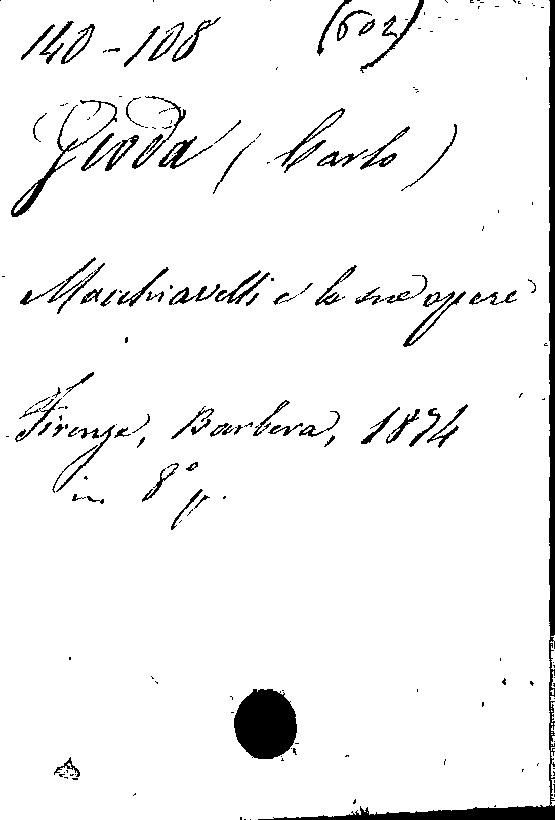 140-108 (602)
Gioda (Carlo)
Macchiavelli e le sue opere
Firenze, Barbera, 1874
in 8° p.